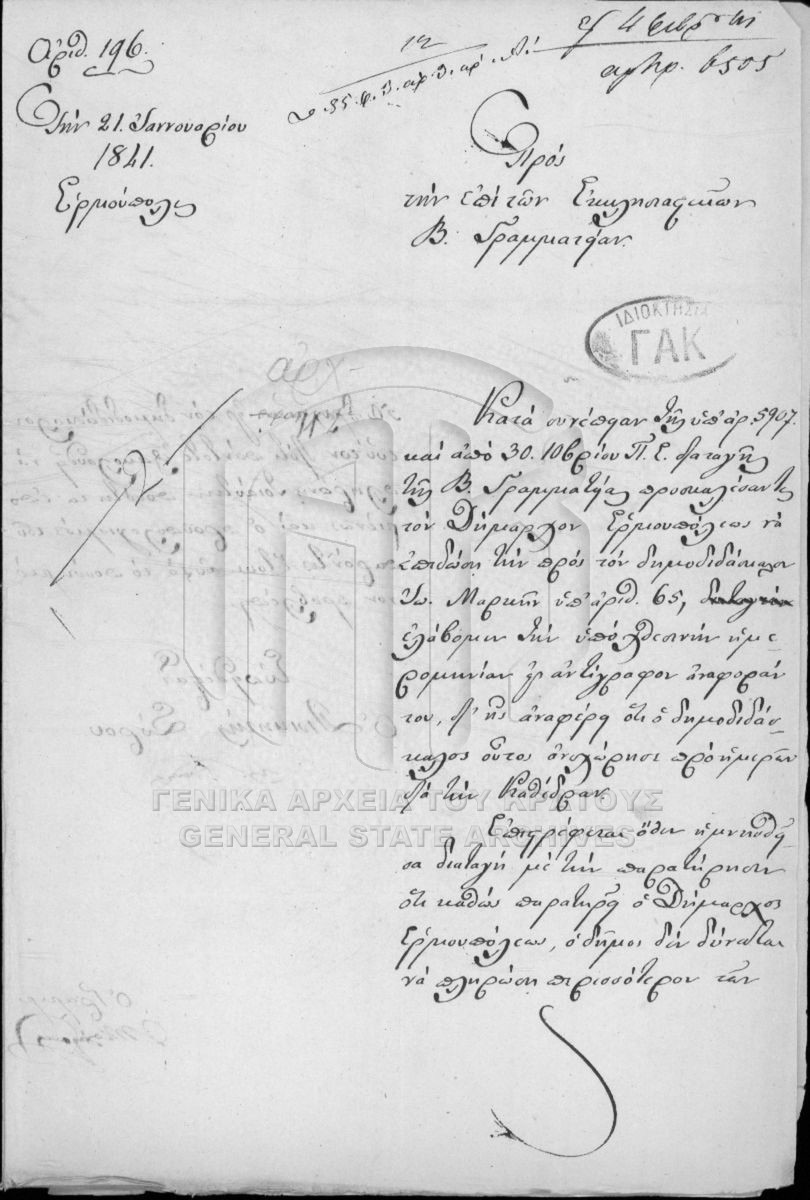 Ἀριθ. 196.
Τὴν 21. Ἰαννουαρίου
1841.
Ἑρμούπολις
12
4
6505
Πρὸς
τὴν ἐπὶ τῶν Ἐκκλησιαστικῶν
Β. Γραμματείαν.
ΙΔΙΟΚΤΗΣΙΑ
ΓΑΚ
ἀρχ.
Κατὰ συνέπειαν τῆς ὑπ' ἀρ. 5907.
καὶ ἀπὸ 30. 10βρίου Π. Ε. διαταγῆς
τῆς Β. Γραμματείας προσκαλέσαντες
τὸν Δήμαρχον Ἑρμουπόλεως νὰ
ἐπιδώσῃ τὴν πρὸς τὸν δημοδιδάσκαλον
Ἰω. Μαρκῆν ὑπ' ἀριθ. 65,
ἐλάβομεν τὴν ὑπὸ χθεσινὴν ἡμε-
ρομηνίαν ἐν ἀντίγραφον ἀναφοράν
του, δι' ἧς ἀναφέρει ὅτι ὁ δημοδιδάσ-
καλος οὗτος ἀνεχώρησε πρὸ ἡμερῶν
διὰ τὴν Καθέδραν.
Ἐπιστρέφεται ὅθεν ἡ μνησθεῖ-
σα διαταγὴ μὲ τὴν παρατήρησιν
ὅτι καθὼς παρατηρεῖ ὁ Δήμαρχος
Ἑρμουπόλεως, ὁ δῆμος δὲν δύναται
νὰ πληρώσῃ περισσότερον τῶν
ΓΕΝΙΚΑ ΑΡΧΕΙΑ ΤΟΥ ΚΡΑΤΟΥΣ
GENERAL STATE ARCHIVES